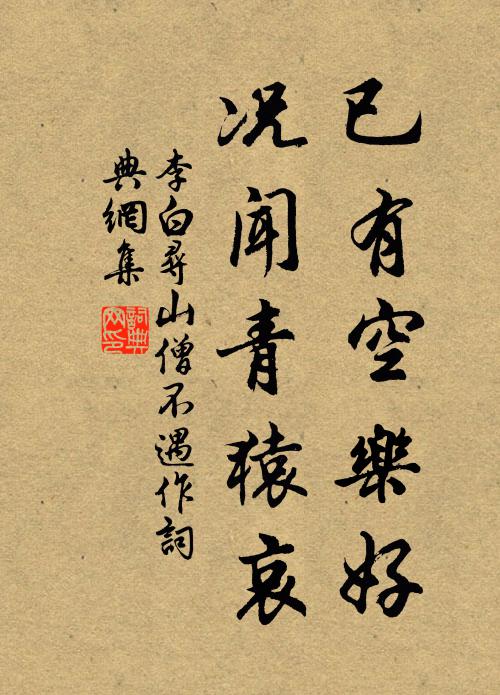 已有空樂好
况聞青猿哀
李白尋山僧不遇作詞
典網集
詞典
网印